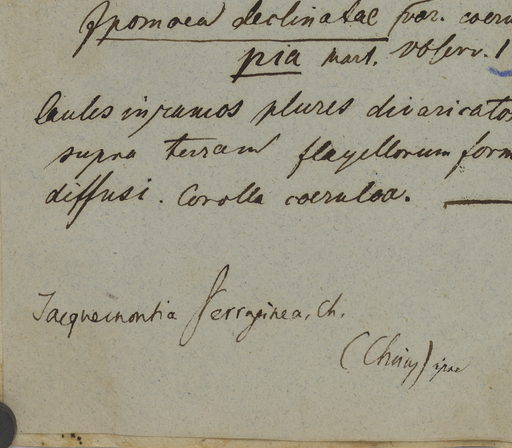 Ipomoea declinatae var. coeru
pia Mart. Observ. 1
Caules in ramos plures divaricatos
supra terram flagellorum form
diffusi. Corolla coerulea.
Jacquemontia ferruginea, Ch.
(Choisy) ipse